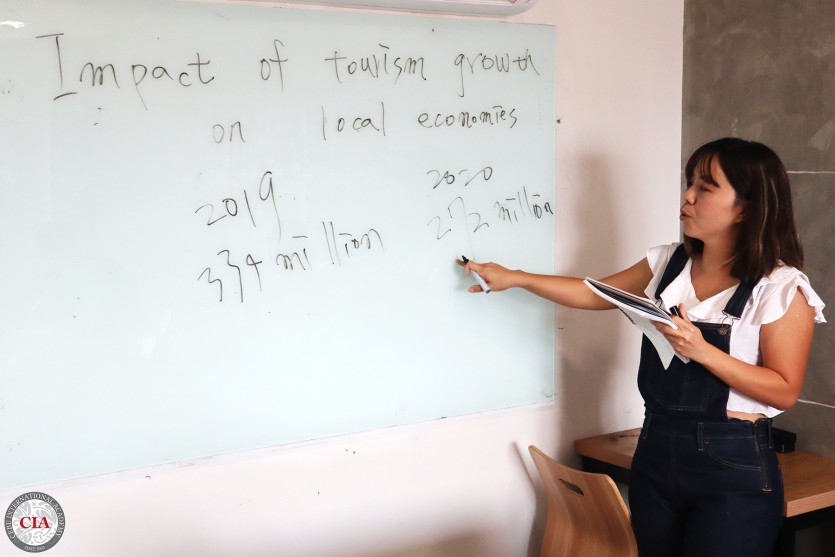 Impact of tourism growth
on local economies
2019 2020
334 million 272 million
CEBU INTERNATIONAL ACADEMY
CIA